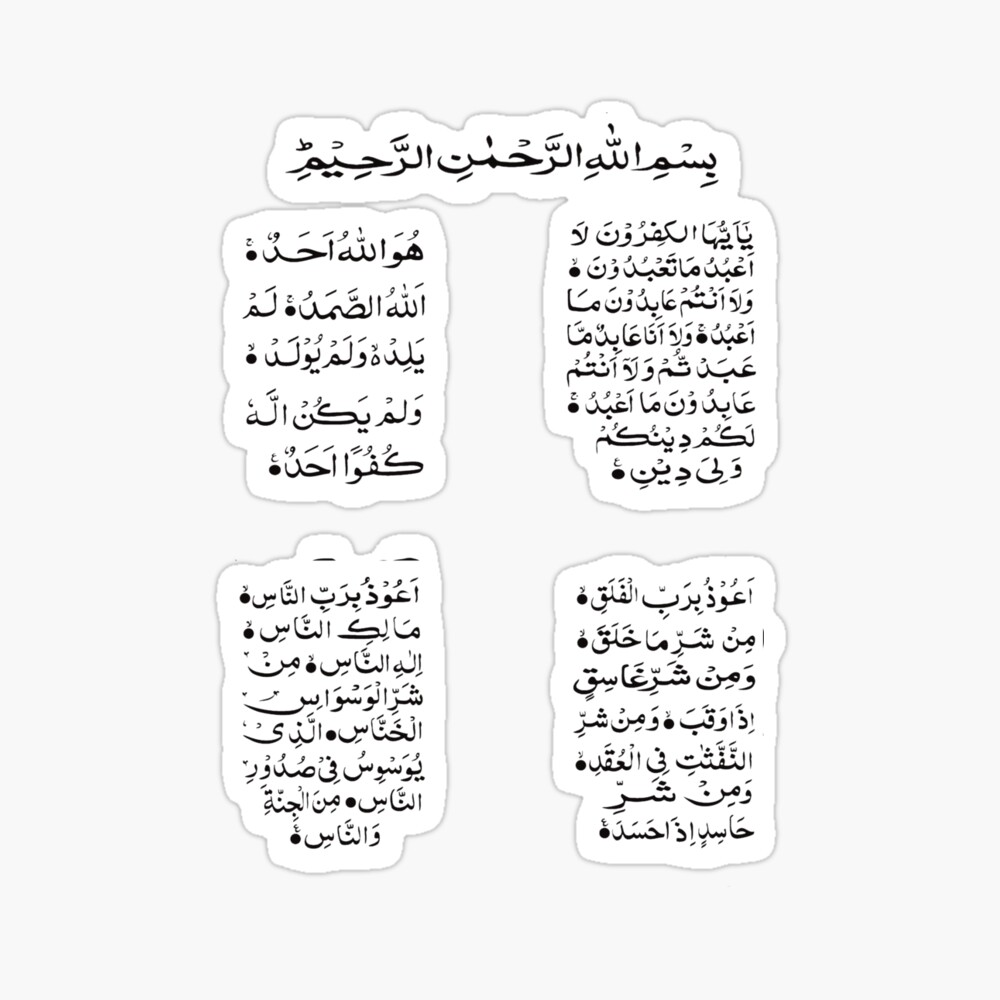 بِسْمِ اللهِ الرَّحْمٰنِ الرَّحِيْمِ
يَٰٓاَيُّهَا الكٰفِرُوْنَ لَا
اَعْبُدُ مَا تَعْبُدُوْنَ ۙ
وَلَا اَنْتُمْ عَابِدُوْنَ مَا
اَعْبُدُ ۚ وَلَا اَنَا عَابِدٌ مَّا
عَبَدْ تُّمْ وَلَآ اَنْتُمْ
عَابِدُوْنَ مَا اَعْبُدُ ۚ
لَكُمْ دِيْنُكُمْ
وَلِيَ دِيْنِ ۚ
هُوَ اللهُ اَحَدٌ ۚ
اَللهُ الصَّمَدُ ۚ لَمْ
يَلِدْ ۙ وَلَمْ يُوْلَدْ ۙ
وَلَمْ يَكُنْ الَّهٗ
كُفُوًا اَحَدٌ ۚ
اَعُوْذُ بِرَبِّ الْفَلَقِ ۙ
مِنْ شَرِّ مَا خَلَقَ ۙ
وَمِنْ شَرِّ غَاسِقٍ
اِذَا وَقَبَ ۙ وَمِنْ شَرِّ
النَّفّٰثٰتِ فِي الْعُقَدِ ۙ
وَمِنْ شَرِّ
حَاسِدٍ اِذَا حَسَدَ ۚ
اَعُوْذُ بِرَبِّ النَّاسِ ۙ
مَالِكِ النَّاسِ ۙ
اِلٰهِ النَّاسِ ۙ مِنْ
شَرِّ الْوَسْوَاسِ
الْخَنَّاسِ ۙ الَّذِىْ
يُوَسْوِسُ فِىْ صُدُوْرِ
النَّاسِ ۙ مِنَ الْجِنَّةِ
وَالنَّاسِ ۚ